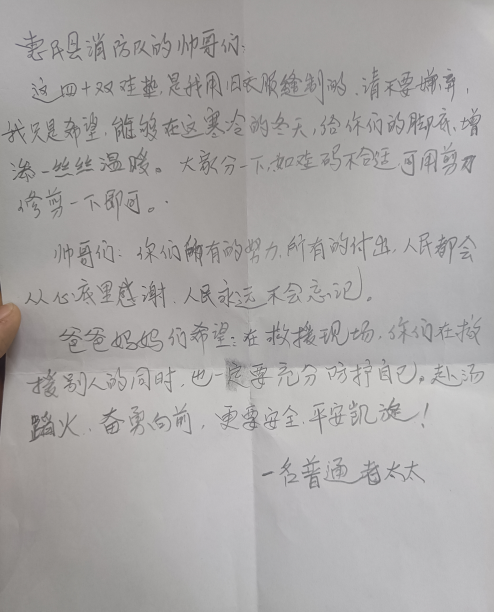 惠民县消防队的帅哥们:
这四十双鞋垫,是我用旧衣服缝制的,请不要嫌弃,
我只是希望,能够在这寒冷的冬天,给你们的脚底,增
添一丝丝温暖。大家分一下,如鞋码不合适,可用剪刀
修剪一下即可。
帅哥们:你们所有的努力,所有的付出,人民都会
从心底里感谢,人民永远不会忘记。
爸爸妈妈们希望:在救援现场,你们在救
援别人的同时,也一定要充分防护自己。赴汤
蹈火,奋勇向前,更要安全,平安凯旋!
一名普通老太太